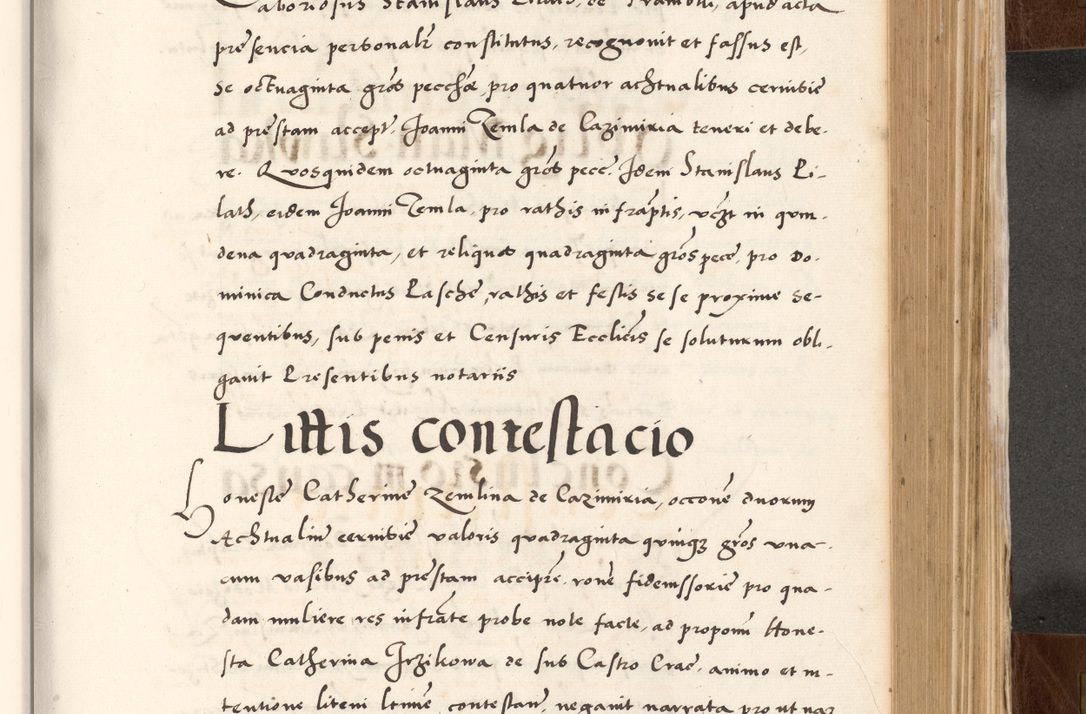 Laboriosus Stanislaus Lilath, de Prambni, apud acta
presencia personalr constitutus, recognovit et fassus est,
se octuaginta gros pecchoe, pro quatuor achtualibus cervisie
ad prestam accept. Joanni Zemla de Cazimiria teneri et debe-
re. Quosquidem octuaginta gros pecc. Idem Stanislaus Li-
lath, eidem Joanni Zemla, pro rathis infraptis, vczt in quin-
dena quadraginta, et reliquos quadraginta gros pecc, pro Do-
minica Conductus Pasche, rathis et festis se se proxime se-
quentibus, sub penis et Censuris Ecclicis se soluturum obli-
gavit Presentibus notariis
Littis contestacio
Honeste Catherine Zemlina de Cazimiria, occone duorum
Achtualiu cervisie valoris quadraginta quinqz gros una-
cum vasibus ad prestam accipre, rone fidemssorie pro qua-
dam muliere res infrate probe note facte, ad proponm Hone-
sta Catherina Jrzikowa de sub Castro Crac. animo et in
tentione liteni ltime contestan, negavit narrata prout nar